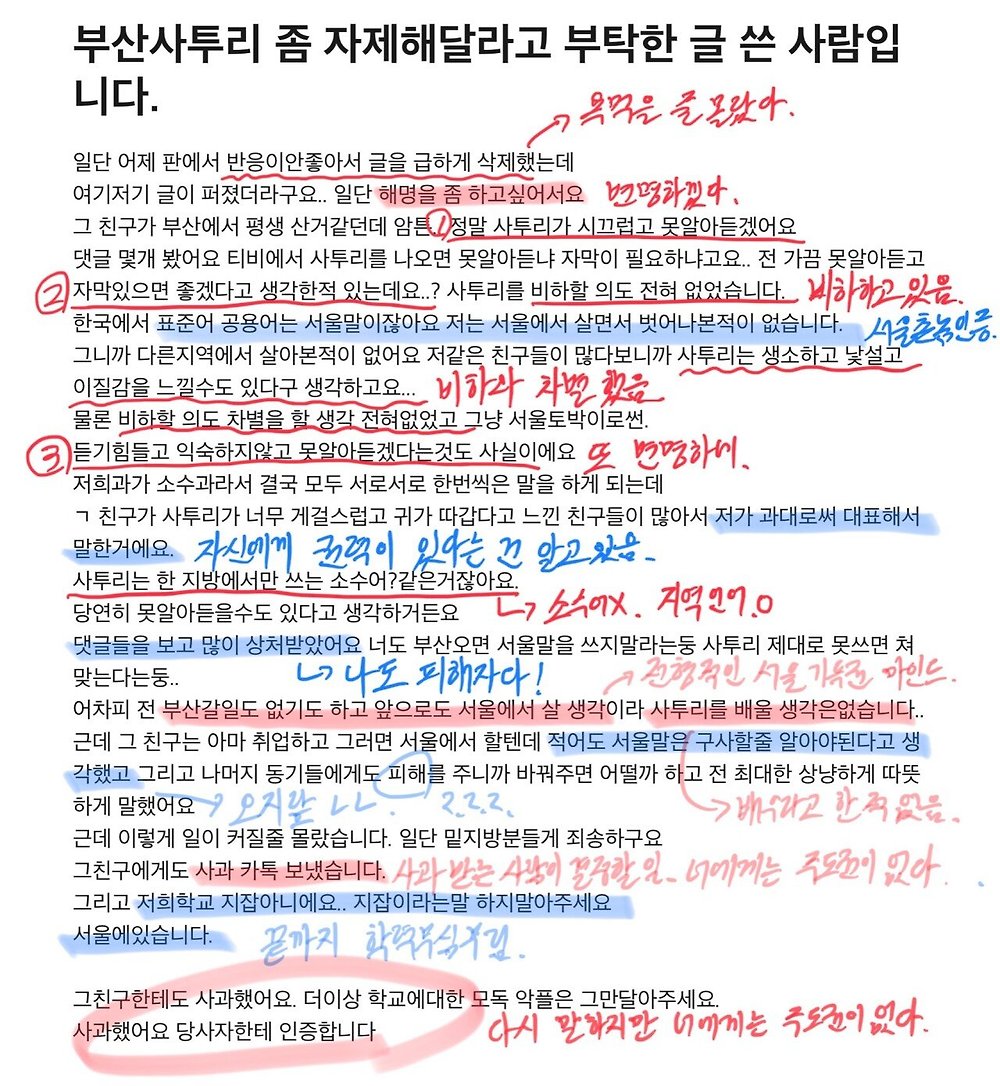 부산사투리 좀 자제해달라고 부탁한 글 쓴 사람입
니다.
욕먹을 줄 몰랐다.
일단 어제 판에서 반응이안좋아서 글을 급하게 삭제했는데
여기저기 글이 퍼졌더라구요.. 일단 해명을 좀 하고싶어서요 변명하겠다.
그 친구가 부산에서 평생 산거같던데 암튼 ① 정말 사투리가 시끄럽고 못알아듣겠어요
댓글 몇개 봤어요 티비에서 사투리를 나오면 못알아듣냐 자막이 필요하냐고요.. 전 가끔 못알아듣고
② 자막있으면 좋겠다고 생각한적 있는데요..? 사투리를 비하할 의도 전혀 없었습니다. 비하하고 있음.
한국에서 표준어 공용어는 서울말이잖아요 저는 서울에서 살면서 벗어나본적이 없습니다. 서울촌놈인증.
그니까 다른지역에서 살아본적이 없어요 저같은 친구들이 많다보니까 사투리는 생소하고 낯설고
이질감을 느낄수도 있다구 생각하고요... 비하와 차별 했음
물론 비하할 의도 차별을 할 생각 전혀없었고 그냥 서울토박이로썬.
③ 듣기힘들고 익숙하지않고 못알아듣겠다는것도 사실이에요 또 변명하네.
저희과가 소수과라서 결국 모두 서로서로 한번씩은 말을 하게 되는데
ㄱ 친구가 사투리가 너무 게걸스럽고 귀가 따갑다고 느낀 친구들이 많아서 저가 과대로써 대표해서
말한거에요. 자신에게 권력이 있다는 건 알고 있음.
사투리는 한 지방에서만 쓰는 소수어?같은거잖아요.
당연히 못알아들을수도 있다고 생각하거든요 ↳ 소수어X. 지역언어.O
댓글들을 보고 많이 상처받았어요 너도 부산오면 서울말을 쓰지말라는둥 사투리 제대로 못쓰면 쳐
맞는다는둥.. ↳ 나도 피해자다! 전형적인 서울 기득권 마인드.
어차피 전 부산갈일도 없기도 하고 앞으로도 서울에서 살 생각이라 사투리를 배울 생각은없습니다..
근데 그 친구는 아마 취업하고 그러면 서울에서 할텐데 적어도 서울말은 구사할줄 알아야된다고 생
각했고 그리고 나머지 동기들에게도 피해를 주니까 바꿔주면 어떨까 하고 전 최대한 상냥하게 따뜻
하게 말했어요 → 오지랖 ㄴㄴ. ???. 배우라고 한 적 없음.
근데 이렇게 일이 커질줄 몰랐습니다. 일단 밑지방분들게 죄송하구요
그친구에게도 사과 카톡 보냈습니다. 사과 받는 사람이 결정할 일. 너에게는 주도권이 없다.
그리고 저희학교 지잡아니에요.. 지잡이라는말 하지말아주세요
서울에있습니다. 끝까지 학력부심부림.
그친구한테도 사과했어요. 더이상 학교에대한 모독 악플은 그만달아주세요.
사과했어요 당사자한테 인증합니다 다시 말하지만 너에게는 주도권이 없다.